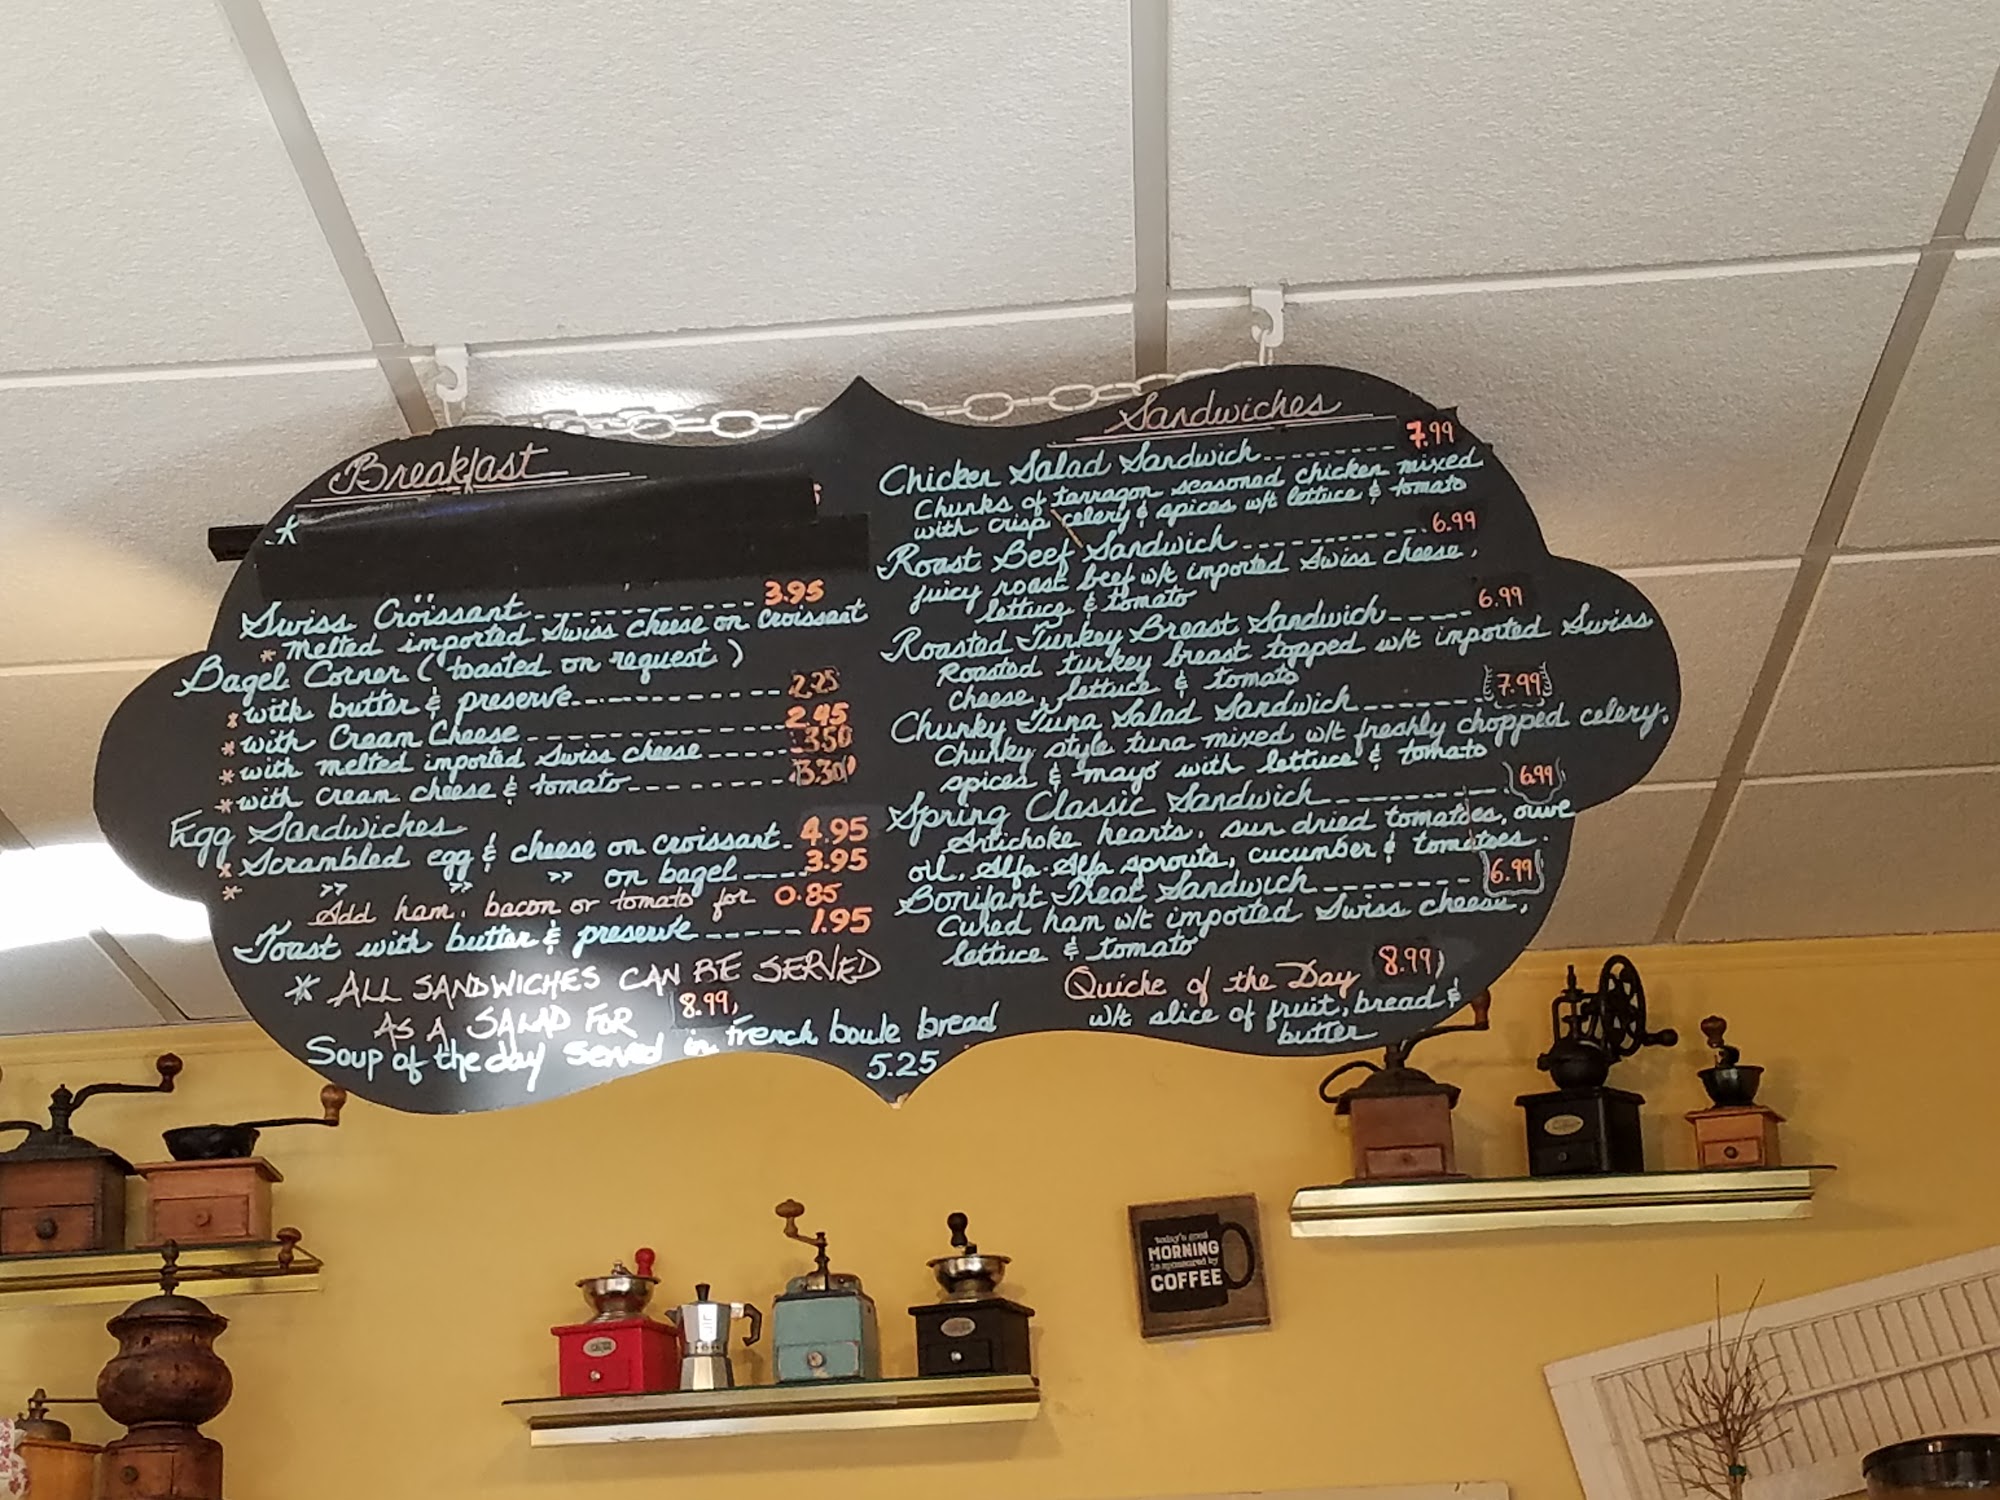 Breakfast
*
Swiss Croissant 3.95
* melted imported Swiss cheese on croissant
Bagel Corner (toasted on request)
* with butter & preserve 2.25
* with Cream Cheese 2.95
* with melted imported Swiss cheese 3.50
* with cream cheese & tomato 3.30
Egg Sandwiches
* Scrambled egg & cheese on croissant 4.95
* " " " on bagel 3.95
Add ham, bacon or tomato for 0.85
Toast with butter & preserve 1.95
* ALL SANDWICHES CAN BE SERVED
AS A SALAD FOR 8.99
Soup of the day served in french boule bread
5.25
Sandwiches
Chicken Salad Sandwich 7.99
Chunks of tarragon seasoned chicken mixed
with crisp celery & spices w/t lettuce & tomato
Roast Beef Sandwich 6.99
juicy roast beef w/t imported Swiss cheese,
lettuce & tomato
Roasted Turkey Breast Sandwich 6.99
Roasted turkey breast topped w/t imported Swiss
cheese, lettuce & tomato
Chunky Tuna Salad Sandwich 7.99
Chunky style tuna mixed w/t freshly chopped celery,
spices & mayo with lettuce & tomato
Spring Classic Sandwich 6.99
Artichoke hearts, sun dried tomatoes, olive
oil, Alfa-Alfa sprouts, cucumber & tomatoes.
Bonifant Treat Sandwich 6.99
Cured ham w/t imported Swiss cheese,
lettuce & tomato
Quiche of the Day 8.99
w/t slice of fruit, bread &
butter
today's good
MORNING
is sponsored by
COFFEE